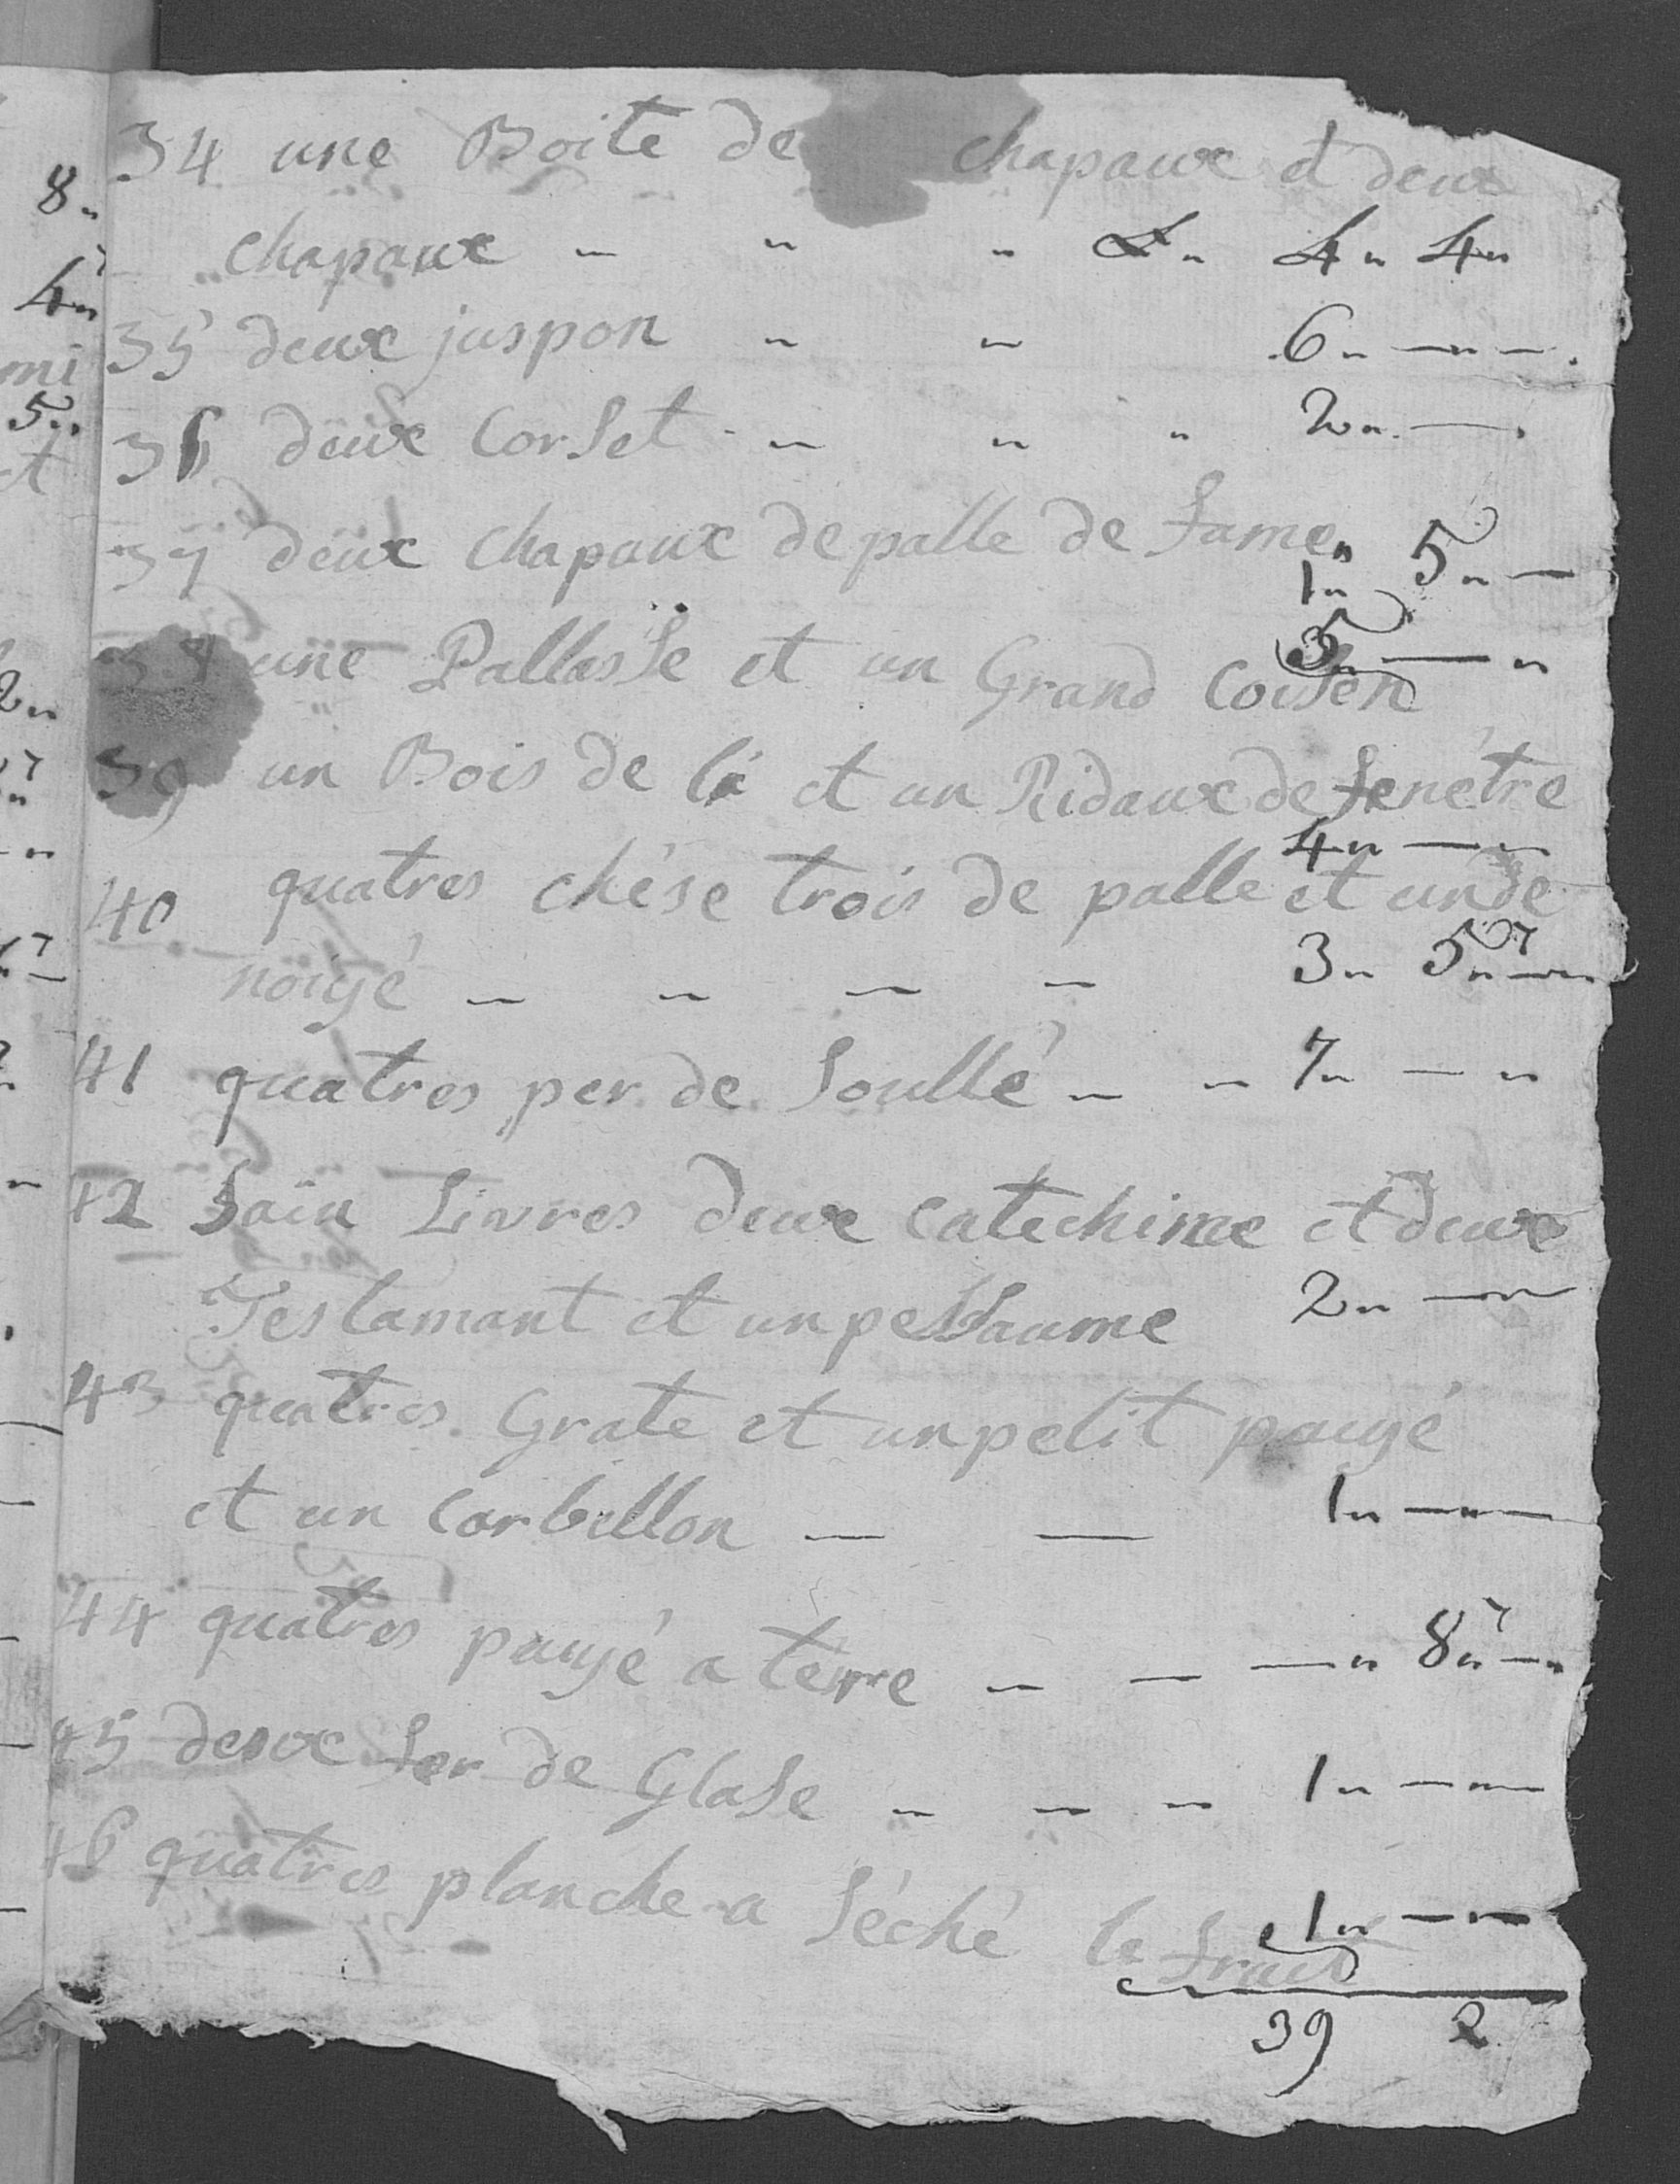 34 une Boite de chapaux et deux
chapaux - " " 4" 4"
35 deux juspon " " 6" — " —
36 deux Corset - " " " 2" —
37 deux chapaux de palle de fame 1" 5" —
38 une Pallasse et un Grand Coisen 5" — "
39 un Bois de li et un Ridaux de fenétre
4" — "
40 quatres chése trois de palle et un de
noiyé - - - - 3" 5" —
41 quatres per de Soullé - - 7" — "
42 Sain Livres deux catechime et deux
Testamant et un pessaume 2" — "
43 quatres Grate et un petit panyé
et un Corbellon — — 1" — " —
44 quatres panyé a terre - — — " 8" — "
45 deux fer de Glase - - - 1" — " —
46 quatres planche a séché le fruis 1" — " —
39 2
8"
4"
mi
5"
et
2"